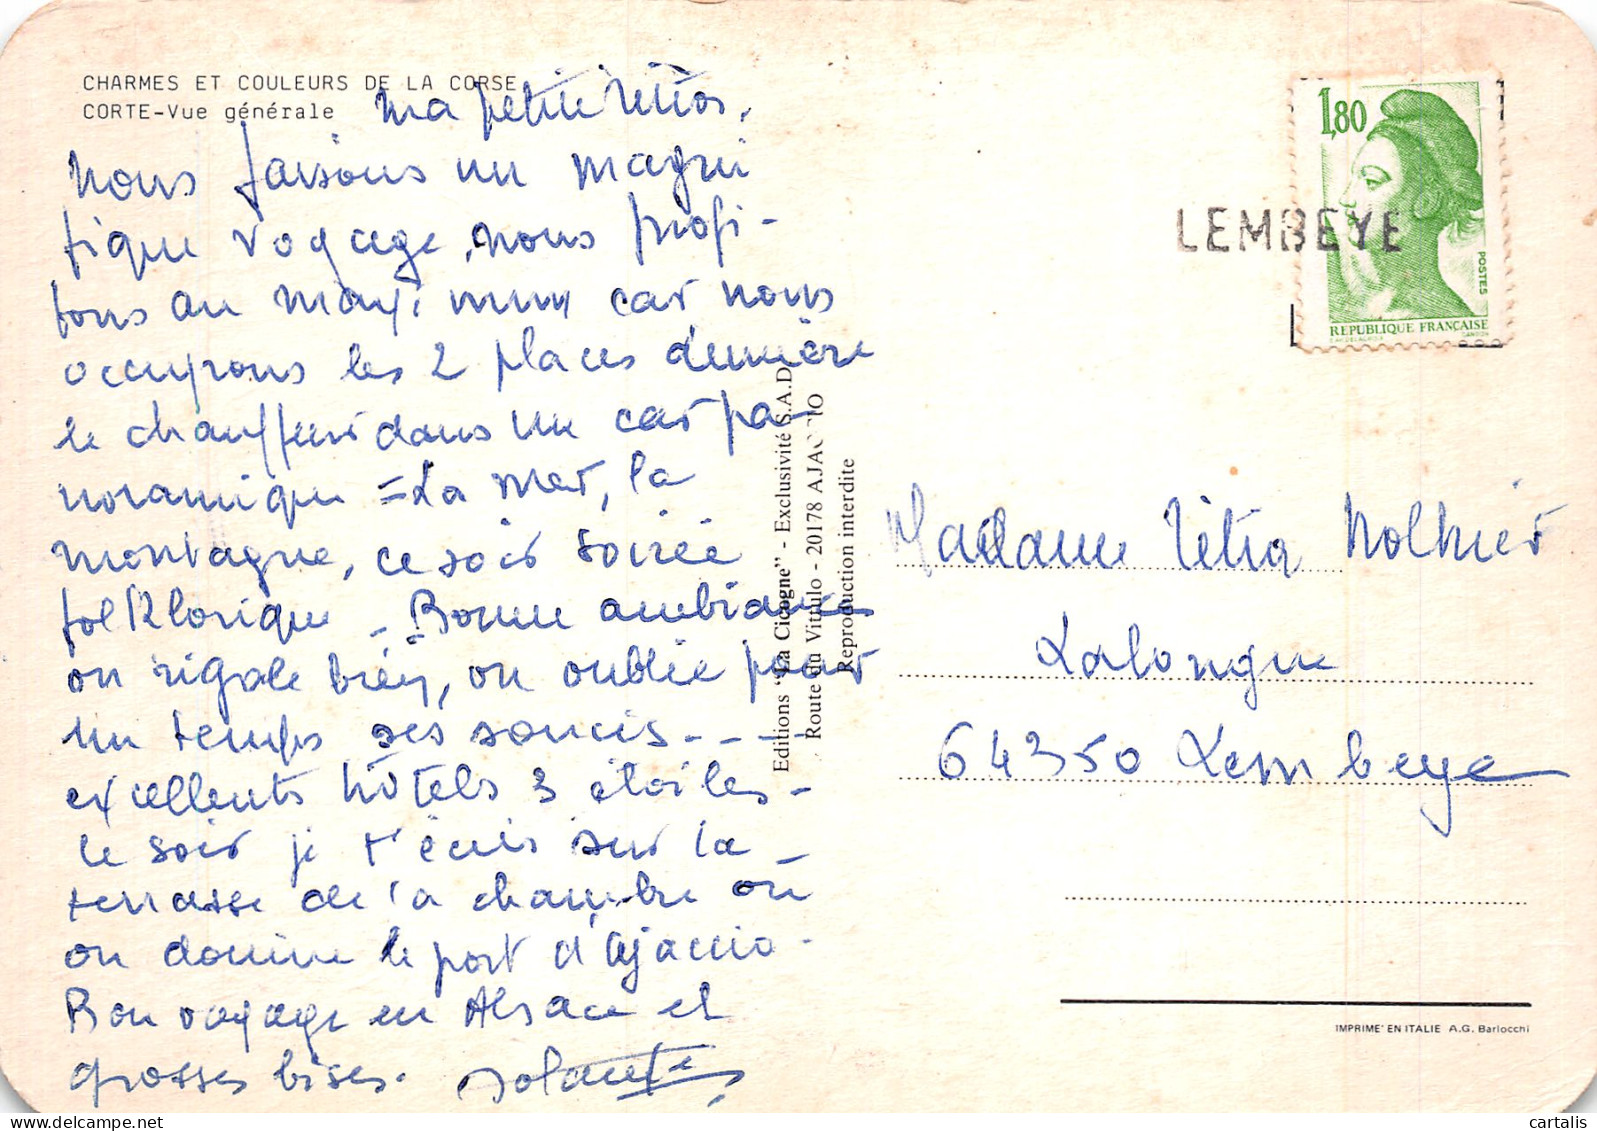 CHARMES ET COULEURS DE LA CORSE
CORTE-Vue générale
ma petite
nous faisons un magni
fique voyage, nous profi-
tons au maximum car nous
occupons les 2 places derrière
le chauffeur dans un car pa-
noramique = La mer, la
montagne, ce soir soirée
folklorique - Bonne ambiance
on rigole bien, on oublie pour
un temps ses soucis - - - -
excellents hôtels 3 étoiles -
le soir je t'écris sur la
terrasse de la chambre où
on domine le port d'Ajaccio.
Bon voyage en Alsace et
grosses bises.
Editions "La Cicogne" - Exclusivité S.A.D.
Route du Vittulo - 20178 AJACCIO
Reproduction interdite
1,80
POSTES
REPUBLIQUE FRANÇAISE
LEMBEYE
Madame
Lalongue
64350 Lembeye
IMPRIME' EN ITALIE A.G. Barlocchi
cartalis